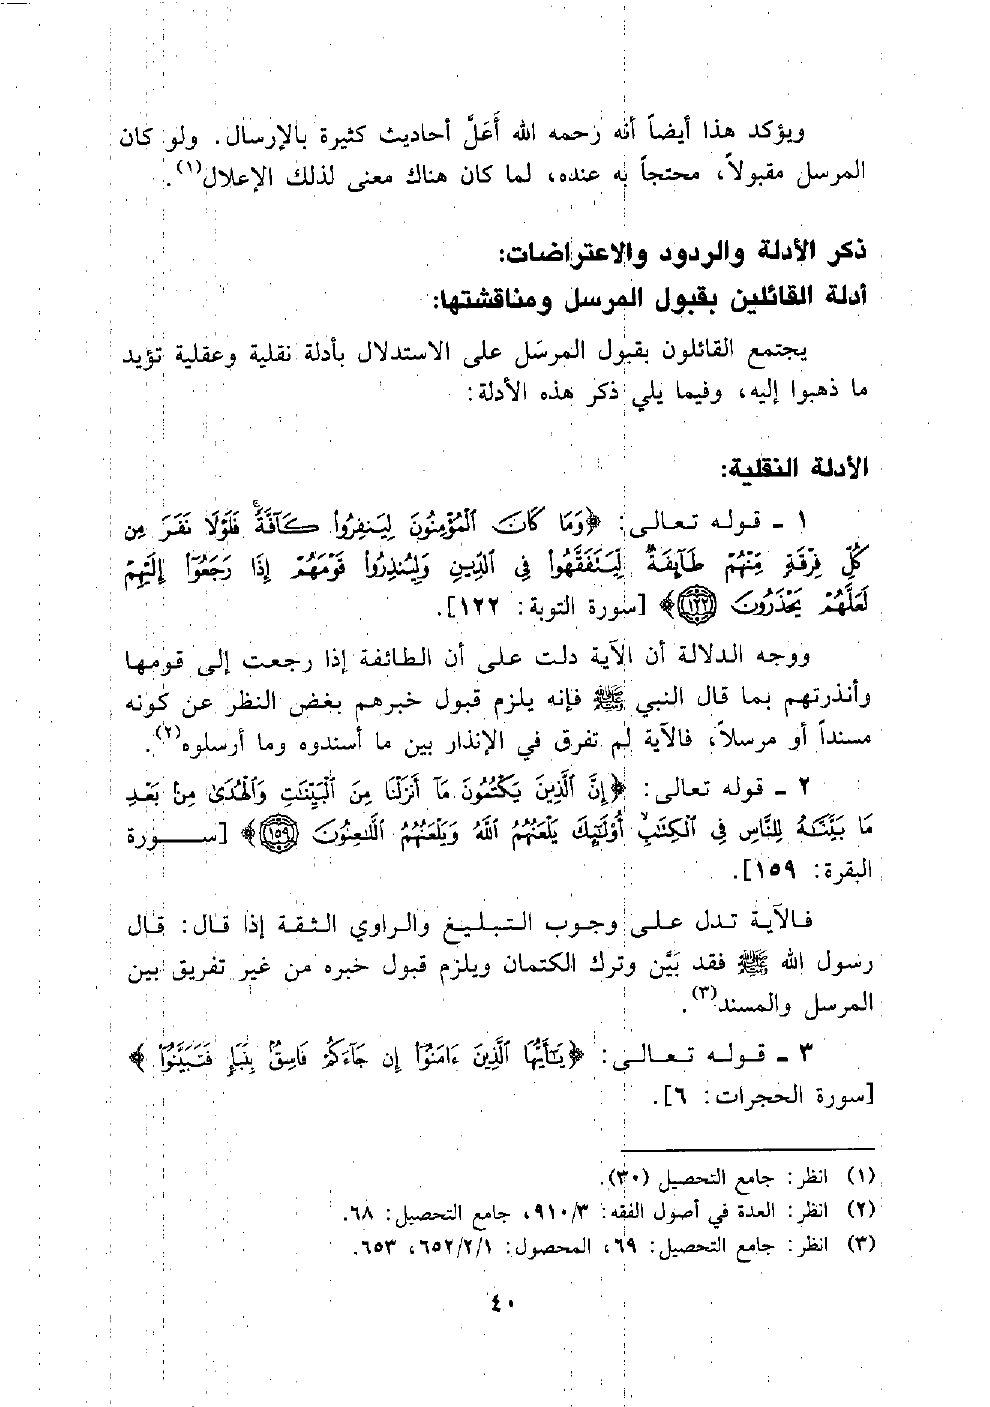 ويؤكد هذا أيضاً أنه رحمه الله أَعَلَّ أحاديث كثيرة بالإرسال. ولو كان
المرسل مقبولاً، محتجاً به عنده، لما كان هناك معنى لذلك الإعلال(١).
ذكر الأدلة والردود والاعتراضات:
أدلة القائلين بقبول المرسل ومناقشتها:
يجتمع القائلون بقبول المرسَل على الاستدلال بأدلة نقلية وعقلية تؤيد
ما ذهبوا إليه، وفيما يلي ذكر هذه الأدلة:
الأدلة النقلية:
١ ـ قوله تعالى: ﴿وَمَا كَانَ الْمُؤْمِنُونَ لِيَنفِرُوا كَآفَّةً فَلَوْلَا نَفَرَ مِن
كُلِّ فِرْقَةٍ مِّنْهُمْ طَآئِفَةٌ لِّيَتَفَقَّهُوا فِي الدِّينِ وَلِيُنذِرُوا قَوْمَهُمْ إِذَا رَجَعُوا إِلَيْهِمْ
لَعَلَّهُمْ يَحْذَرُونَ ﴿١٢٢﴾﴾ [سورة التوبة: ١٢٢].
ووجه الدلالة أن الآية دلت على أن الطائفة إذا رجعت إلى قومها
وأنذرتهم بما قال النبي ﷺ فإنه يلزم قبول خبرهم بغض النظر عن كونه
مسنداً أو مرسلاً، فالآية لم تفرق في الإنذار بين ما أسندوه وما أرسلوه(٢).
٢ ـ قوله تعالى: ﴿إِنَّ الَّذِينَ يَكْتُمُونَ مَآ أَنزَلْنَا مِنَ الْبَيِّنَٰتِ وَالْهُدَىٰ مِنۢ بَعْدِ
مَا بَيَّنَّٰهُ لِلنَّاسِ فِي الْكِتَٰبِ أُولَٰٓئِكَ يَلْعَنُهُمُ اللَّهُ وَيَلْعَنُهُمُ اللَّٰعِنُونَ ﴿١٥٩﴾﴾ [سـورة
البقرة: ١٥٩].
فالآية تدل على وجوب التبليغ والراوي الثقة إذا قال: قال
رسول الله ﷺ فقد بَيَّن وترك الكتمان ويلزم قبول خبره من غير تفريق بين
المرسل والمسند(٣).
٣ ـ قوله تعالى: ﴿يَٰٓأَيُّهَا الَّذِينَ ءَامَنُوٓا إِن جَآءَكُمْ فَاسِقٌۢ بِنَبَإٍ فَتَبَيَّنُوٓا﴾
[سورة الحجرات: ٦].
(١) انظر: جامع التحصيل (٣٠).
(٢) انظر: العدة في أصول الفقه: ٩١٠/٣، جامع التحصيل: ٦٨.
(٣) انظر: جامع التحصيل: ٦٩، المحصول: ٦٥٢/٢/١، ٦٥٣.
٤٠